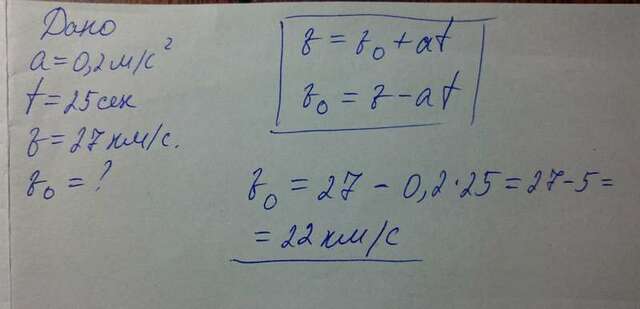 Дано
a = 0,2 м/с²
t = 25 сек
v = 27 км/с.
v₀ = ?
v = v₀ + at
v₀ = v - at
v₀ = 27 - 0,2·25 = 27-5 =
= 22 км/с